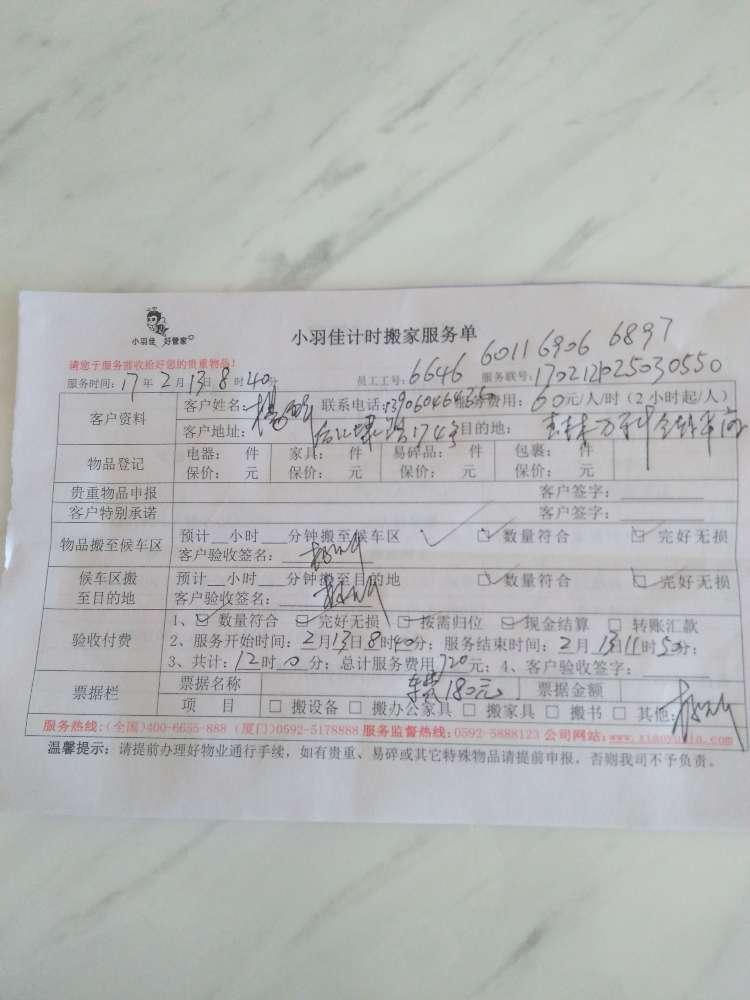 小羽佳 好管家
小羽佳计时搬家服务单
请您于服务前收拾好您的贵重物品！
6011 6906 6897
服务时间：17年2月13日8时40分 员工工号：6646 服务联号：170212025030550
客户资料 客户姓名：杨 联系电话： 服务费用：60元/人/时（2小时起/人）
客户地址： 174号 目的地：
物品登记 电器： 件 家具： 件 易碎品： 件 包裹： 件
保价： 元 保价： 元 保价： 元 保价： 元
贵重物品申报 客户签字：
客户特别承诺 客户签字：
物品搬至候车区 预计__小时___分钟搬至候车区 ☑ 数量符合 ☑ 完好无损
客户验收签名：
候车区搬至目的地 预计__小时___分钟搬至目的地 ☑ 数量符合 ☑ 完好无损
客户验收签名：
验收付费 1、☑ 数量符合 ☑ 完好无损 ☑ 按需归位 ☑ 现金结算 □ 转账汇款
2、服务开始时间：2月13日8时40分；服务结束时间：2月13日11时50分；
3、共计：12时0分；总计服务费用720元；4、客户验收签字：
票据栏 票据名称 车费180元 票据金额
项 目 □ 搬设备 □ 搬办公家具 □ 搬家具 □ 搬书 □ 其他：
服务热线：(全国)400-6655-888 (厦门)0592-5178888 服务监督热线：0592-5888123 公司网站：www.xiaoyujia.com
温馨提示：请提前办理好物业通行手续，如有贵重、易碎或其它特殊物品请提前申报，否则我司不予负责。